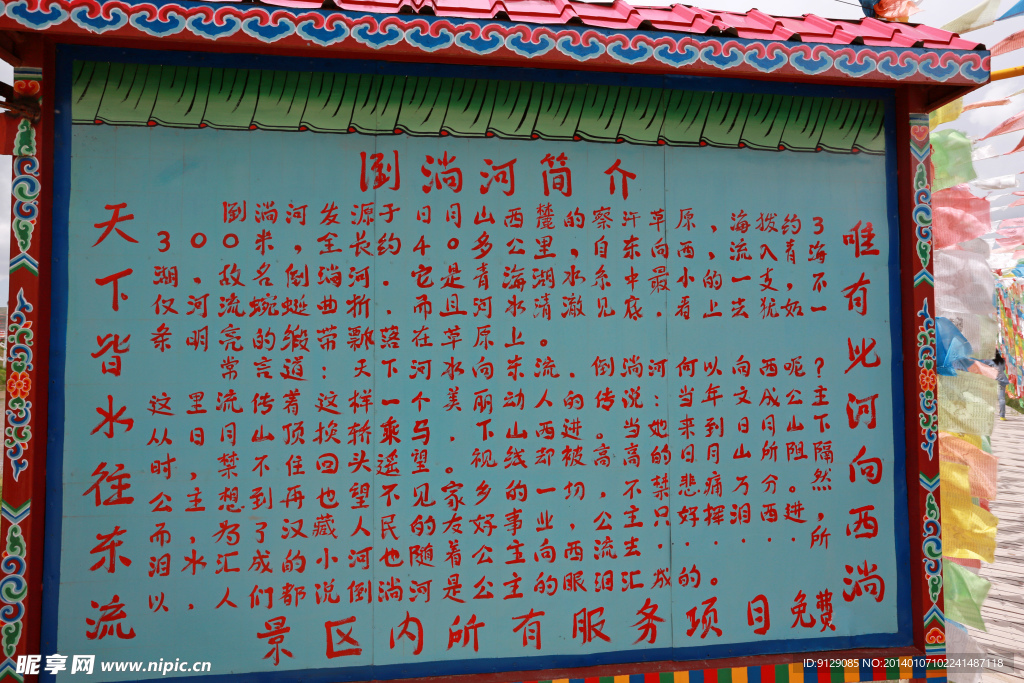 倒淌河简介
天下皆水往东流
倒淌河发源于日月山西麓的察汗草原，海拔约3
300米，全长约40多公里，自东向西，流入青海
湖。故名倒淌河。它是青海湖水系中最小的一支，不
仅河流蜿蜒曲折．而且河水清澈见底．看上去犹如一
条明亮的缎带飘落在草原上。
常言道：天下河水向东流．倒淌河何以向西呢？
这里流传着这样一个美丽动人的传说：当年文成公主
从日月山顶换轿乘马．下山西进。当她来到日月山下
时，禁不住回头遥望。视线却被高高的日月山所阻隔
公主想到再也望不见家乡的一切，不禁悲痛万分。然
而，为了汉藏人民的友好事业，公主只好挥泪西进，
泪水汇成的小河也随着公主向西流去······所
以，人们都说倒淌河是公主的眼泪汇成的。
唯有此河向西淌
景区内所有服务项目免费
昵享网 www.nipic.cn
ID:9129085 NO:20140107102241487118